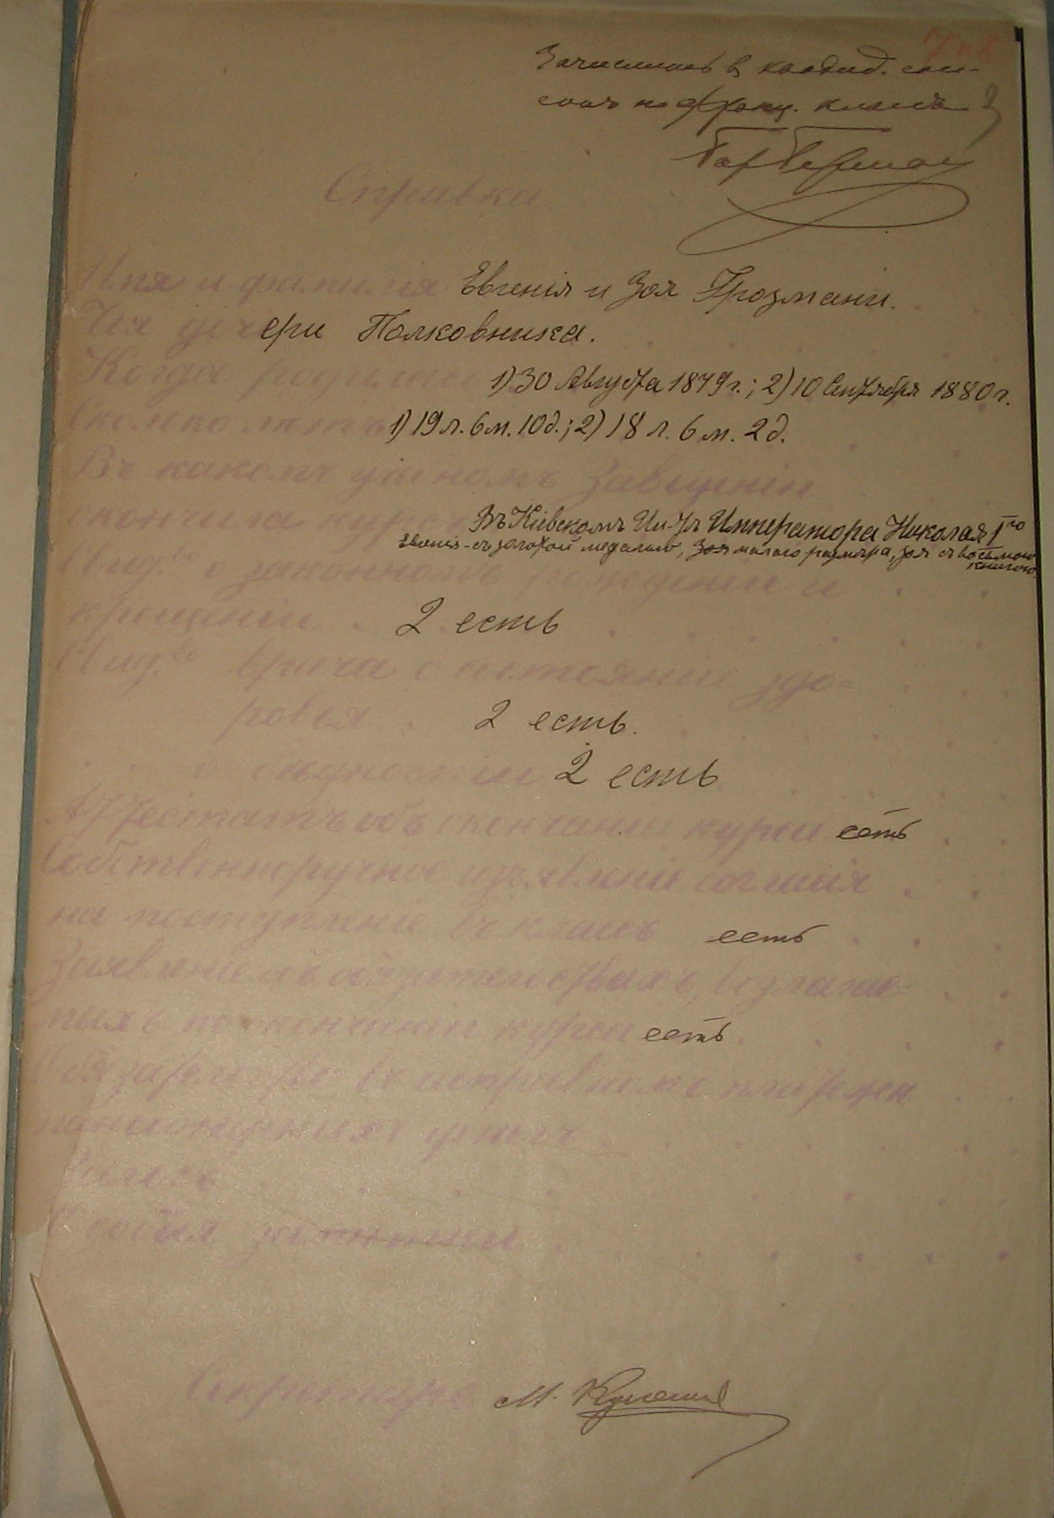 Зачислить в кандид. спи-
сокъ на франц. классъ
Справка
Имя и фамилія Евгенія и Зоя Грозмани.
Чья дочери Полковника.
Когда родилась 1) 30 Августа 1879 г.; 2) 10 Сентября 1880 г.
Сколько лѣтъ 1) 19 л. 6 м. 10 д.; 2) 18 л. 6 м. 2 д.
Въ какомъ учебномъ заведеніи
кончила курсъ Въ Кіевскомъ Ин-тѣ Императора Николая I го
Евгенія - съ золотой медалью, малаго размѣра, Зоя съ
книгою.
Свид. во о законномъ рожденіи и
крещеніи 2 есть
Свид. во врача о состояніи здо=
ровья 2 есть.
о 2 есть
Аттестатъ объ окончаніи курса есть
Собственноручное изъявленіе согласія
на поступленіе въ классъ есть
Заявленіе объ обязательствахъ, возлагае=
мыхъ по окончаніи курса есть
Обязательство въ исправномъ платежѣ
Секретарь М.